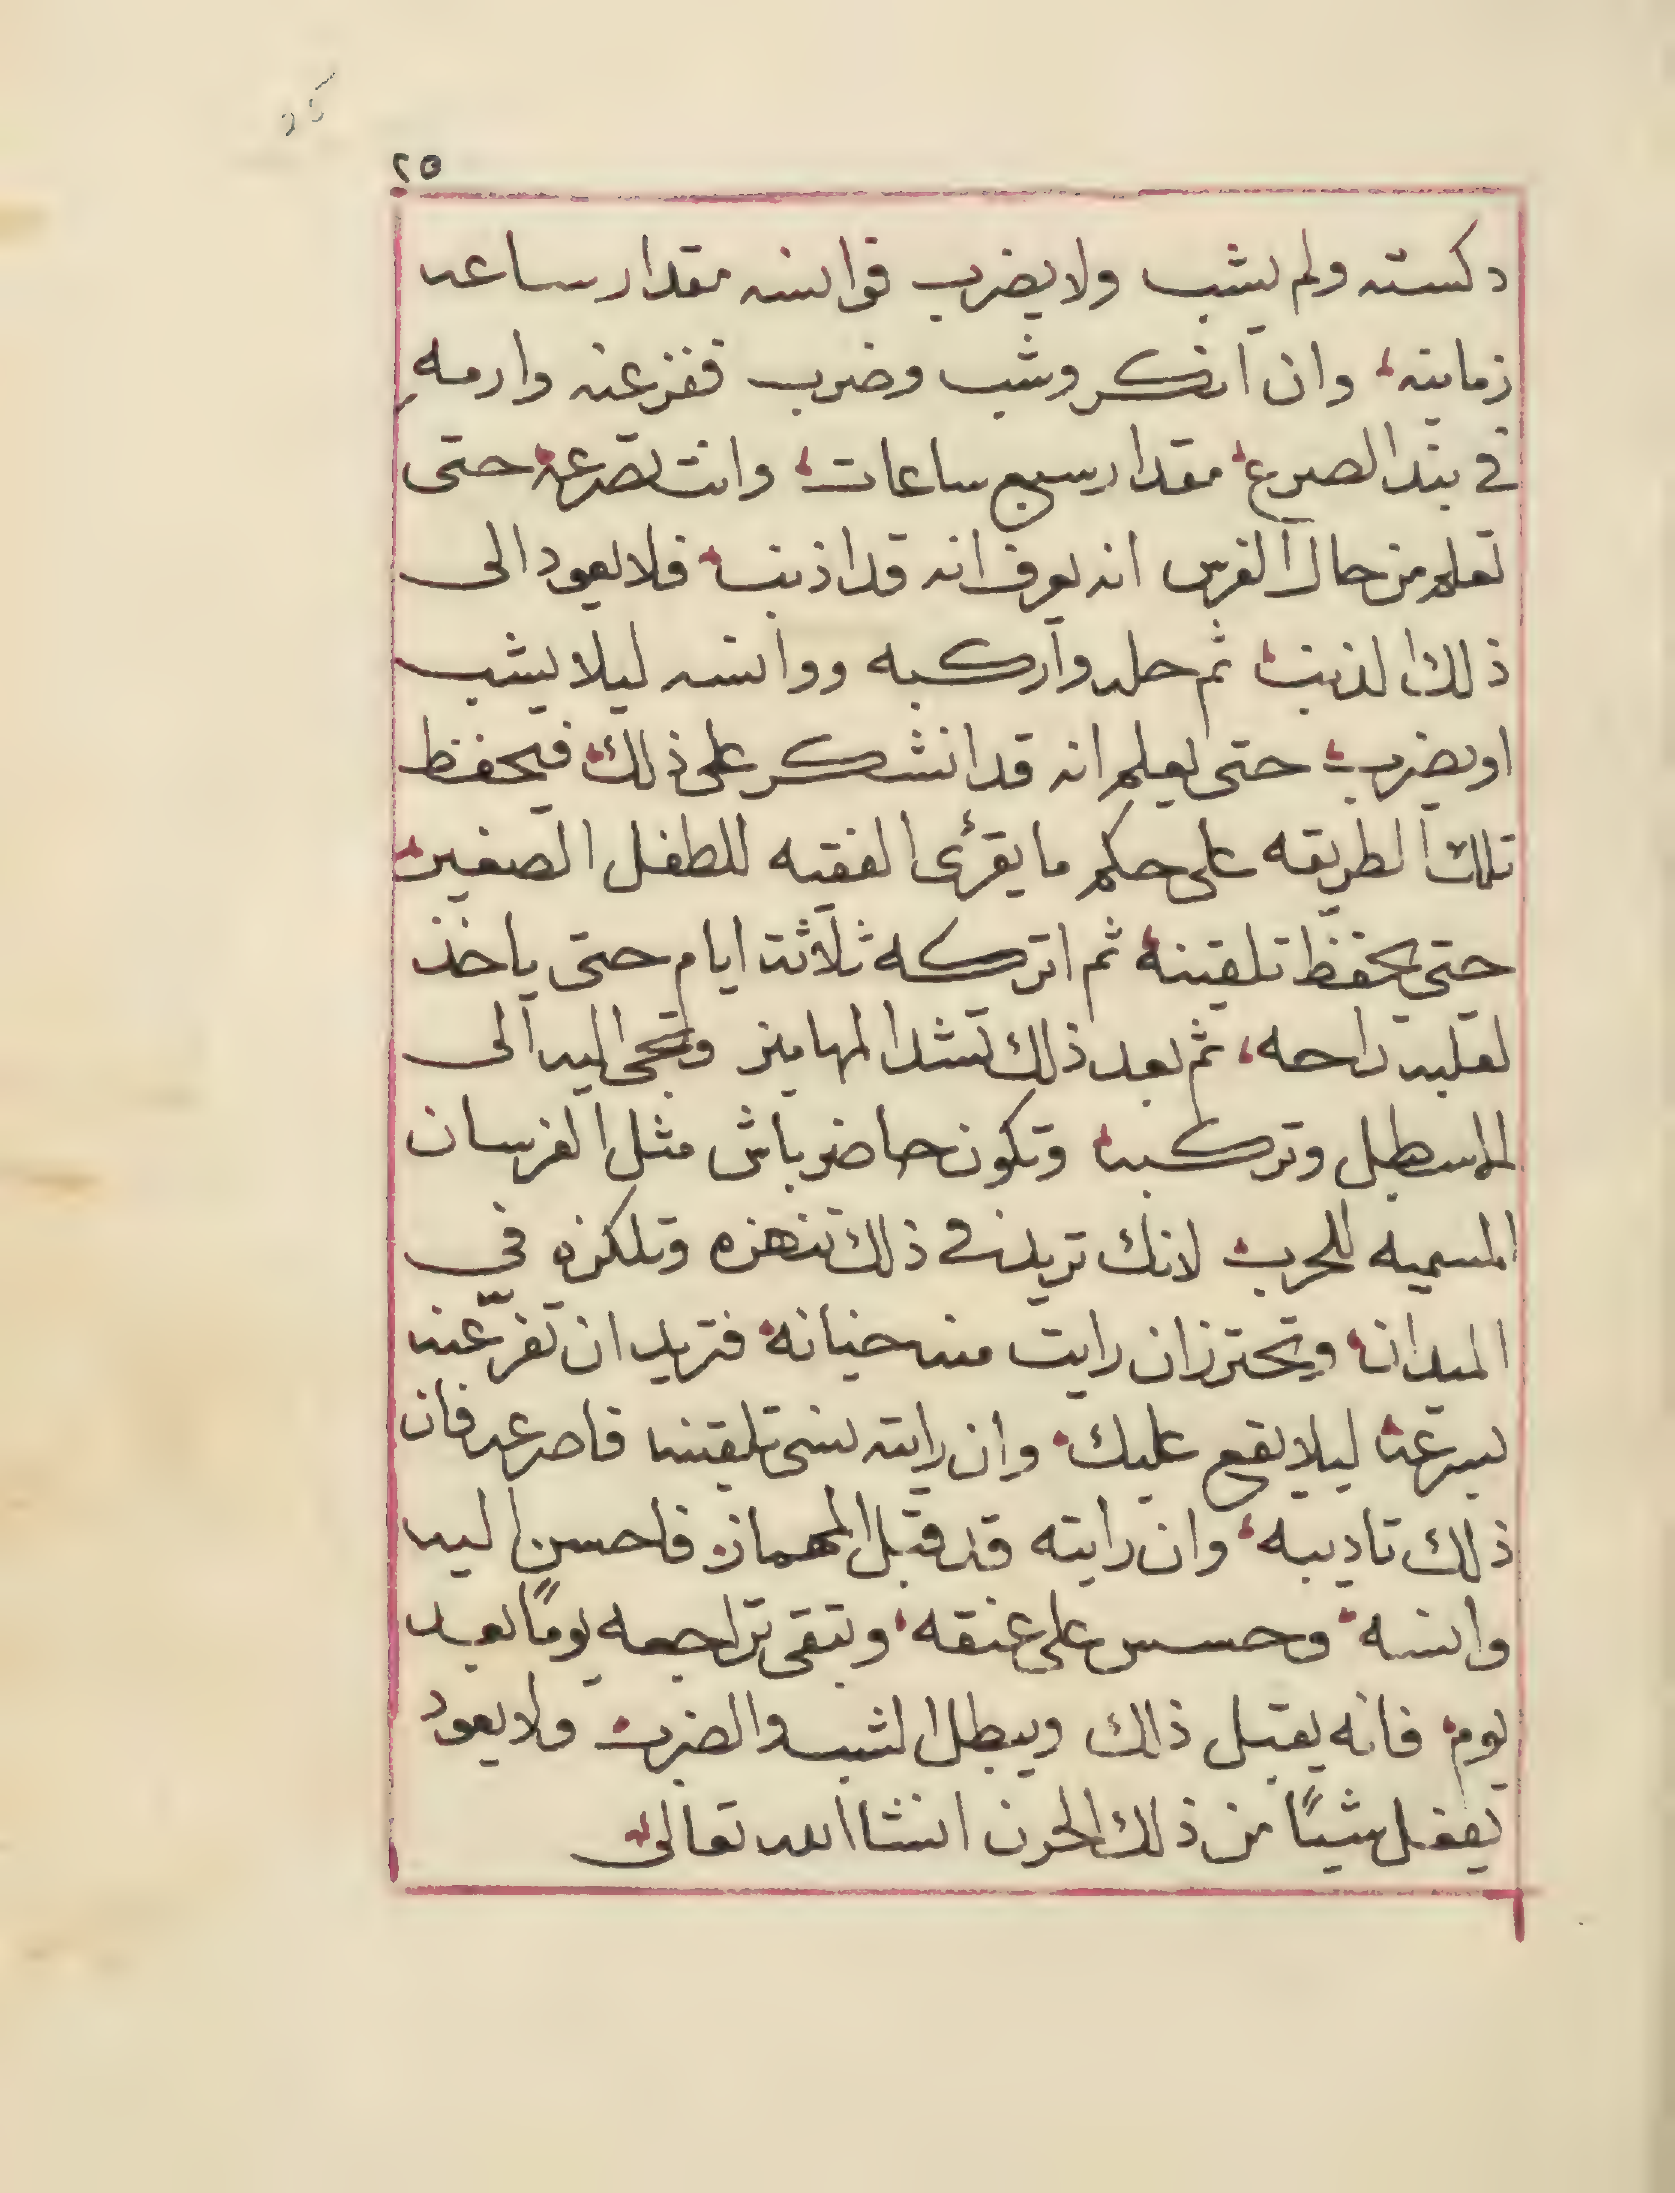 25
٢٥
دكسته ولم يشب ولا يضرب فوانسه مقدار ساعه
زمانيه وان انكر وشب وضرب ففز عنه وارمه
في بند الصرع مقدار سبع ساعات وانت تصرعه حتى
تعلم من حال الفرس انه يعرف انه قد اذنب فلا يعود الى
ذلك الذنب ثم حله واركبه ووانسه ليلا يشب
او يضرب حتى يعلم انه قد انشكر على ذلك فيحفظ
تلك الطريقه على حكم ما يقرئ الفقيه للطفل الصغير
حتى يحفظ تلقينه ثم اتركه ثلاثة ايام حتى ياخذ
لقلبه راحه ثم بعد ذلك تشد المهاميز وتجى اليه الى
الاسطبل وتركبه وتكون حاضر باش مثل الفرسان
المسميه للحرب لانك تريد في ذلك تنهزه وتلكزه في
الميدان وتحترز ان رايت منه خيانه فتريد ان تفز عنه
بسرعه ليلا يقع عليك وان رايته نسى تلقينه فاصرعه فان
ذلك تاديبه وان رايته قد قبل المهماز فاحسن اليه
وانسه وحسس على عنقه وتبقى تراجعه يومًا بعد
يوم فانه يقبل ذلك ويبطل الشب والضرب ولا يعود
يفعل شيًا من ذلك الحرن انشا الله تعالى